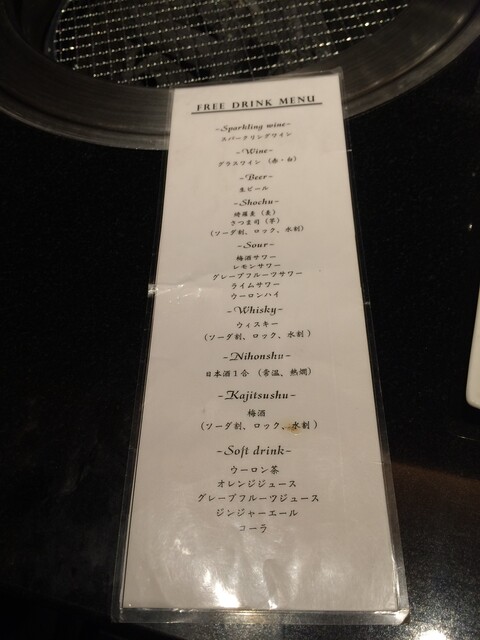 FREE DRINK MENU
~Sparkling wine~
スパークリングワイン
~Wine~
グラスワイン (赤・白)
~Beer~
生ビール
~Shochu~
(麦)
さつま司 (芋)
(ソーダ割、ロック、水割)
~Sour~
梅酒サワー
レモンサワー
グレープフルーツサワー
ライムサワー
ウーロンハイ
~Whisky~
ウィスキー
(ソーダ割、ロック、水割)
~Nihonshu~
日本酒1合 (常温、熱燗)
~Kajitsushu~
梅酒
(ソーダ割、ロック、水割)
~Soft drink~
ウーロン茶
オレンジジュース
グレープフルーツジュース
ジンジャーエール
コーラ